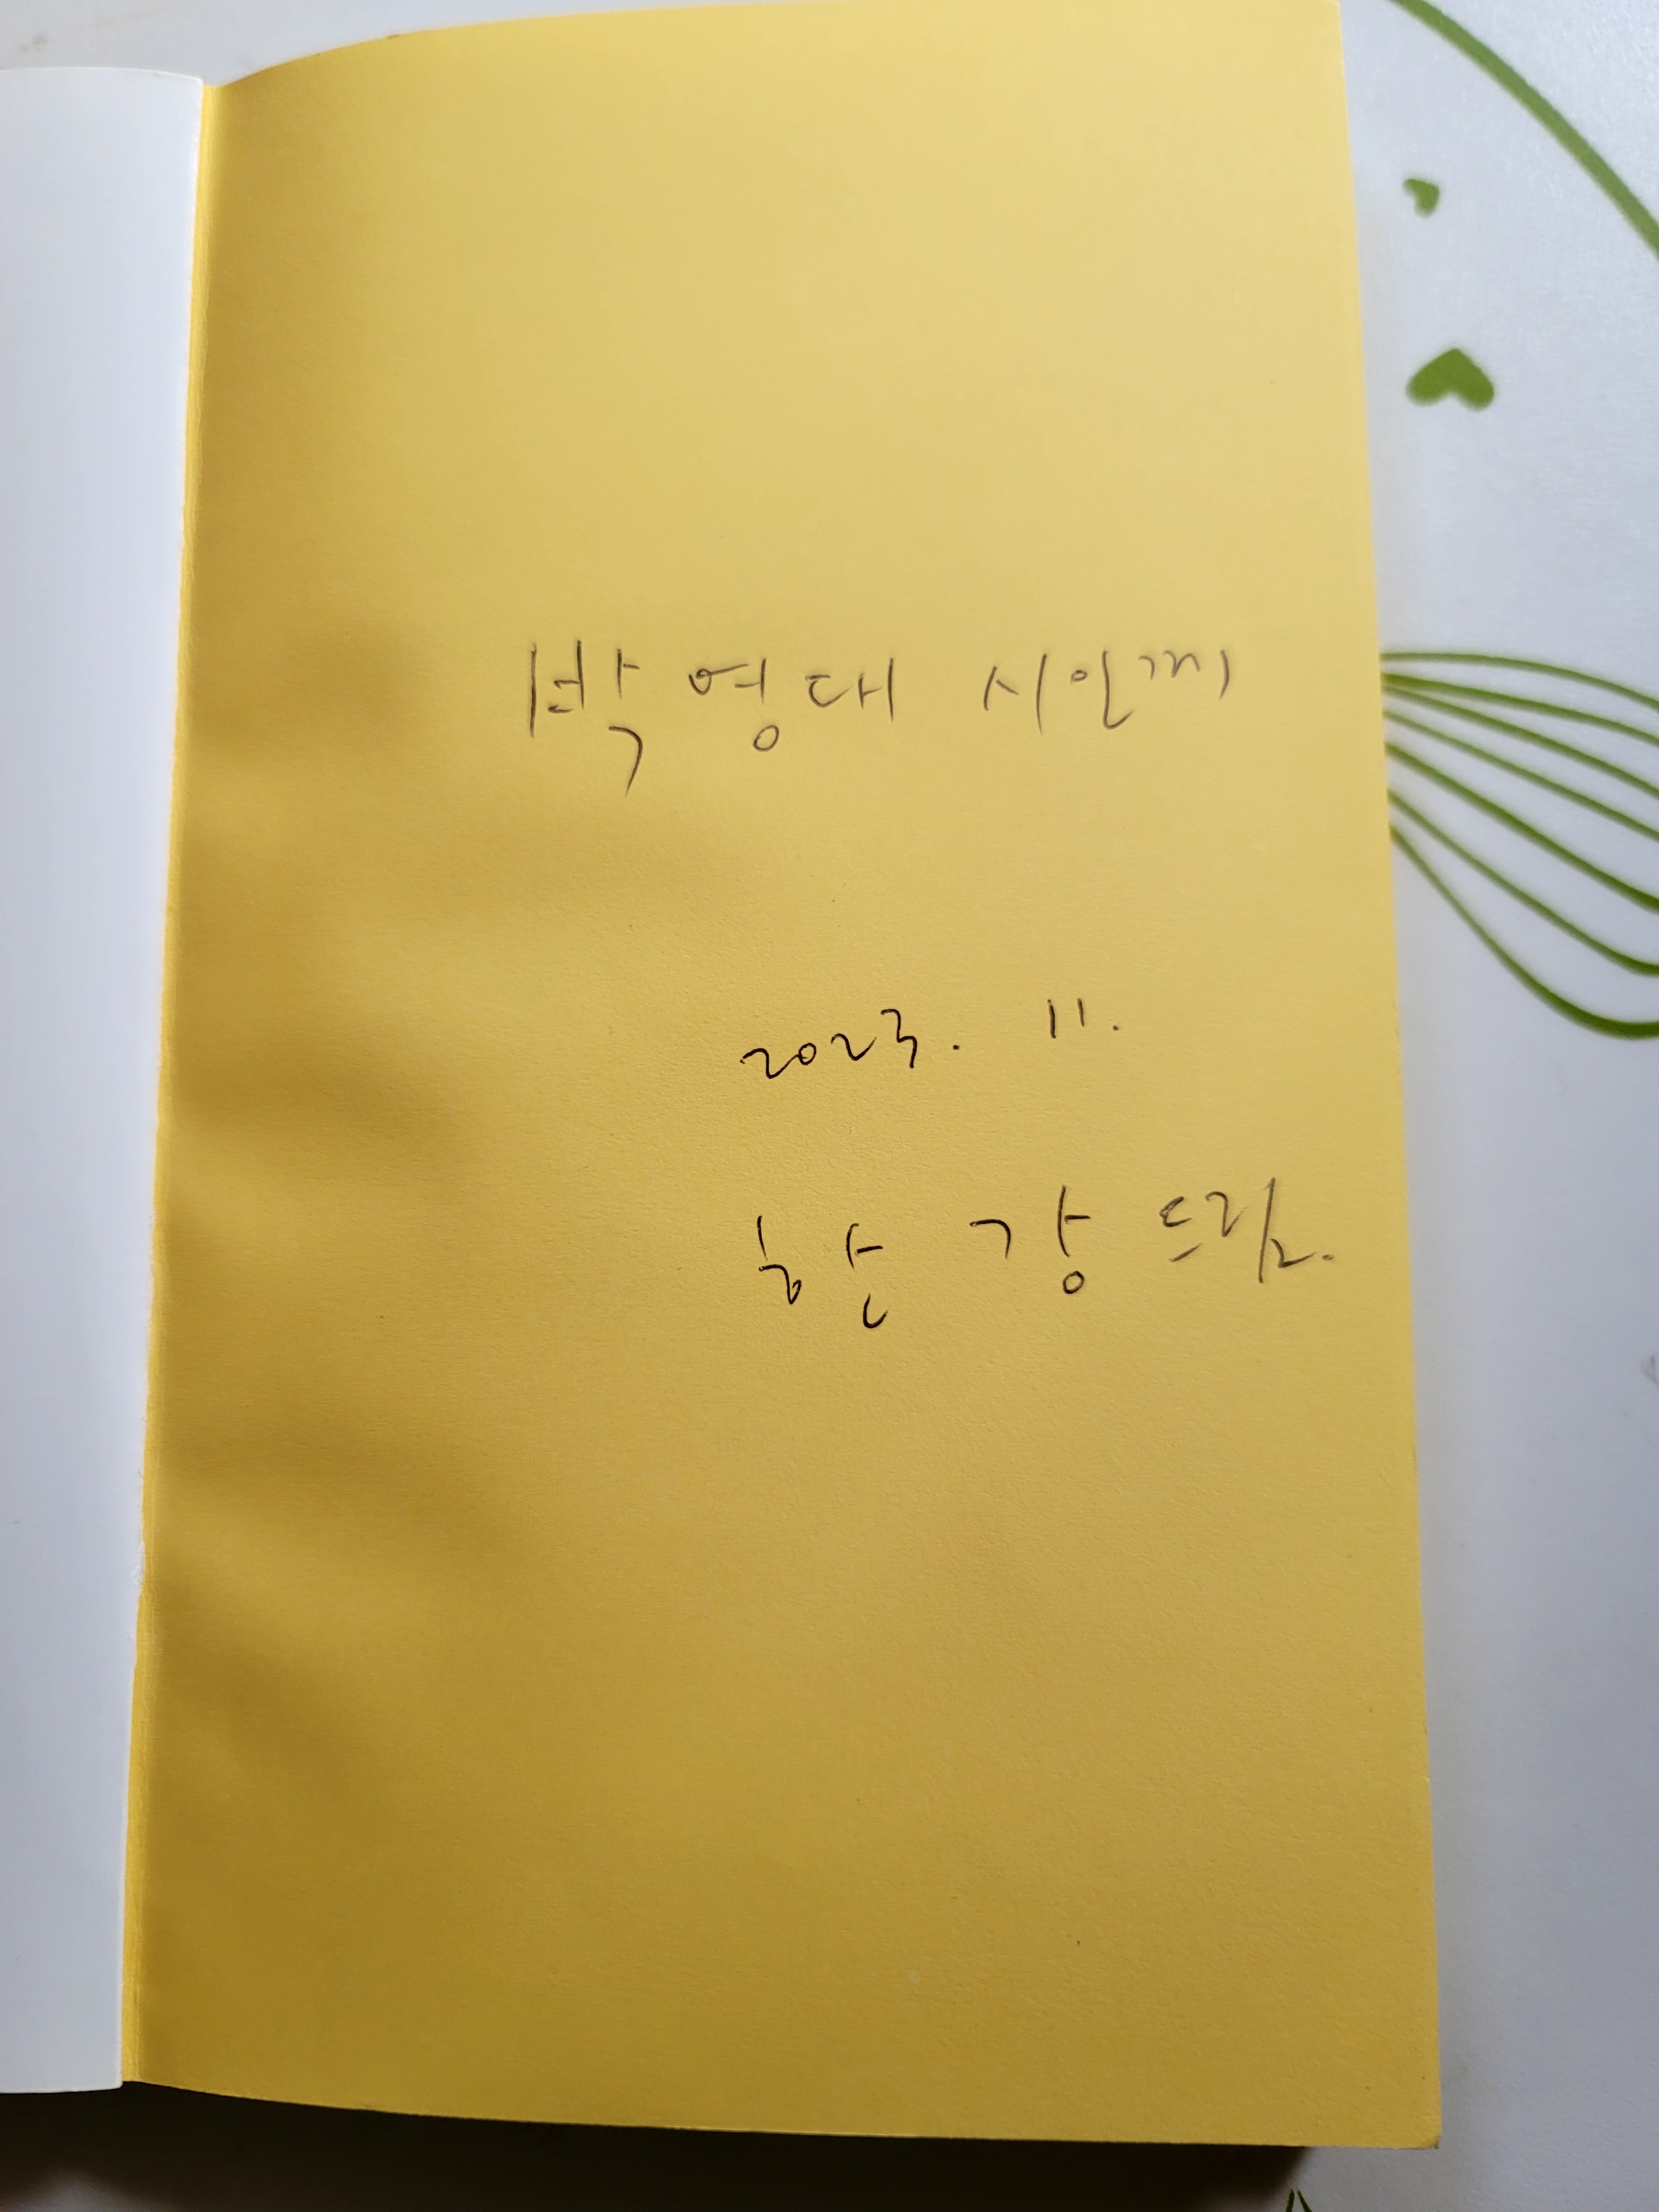 박영대 시인께
2023. 11.
한 강 드림.